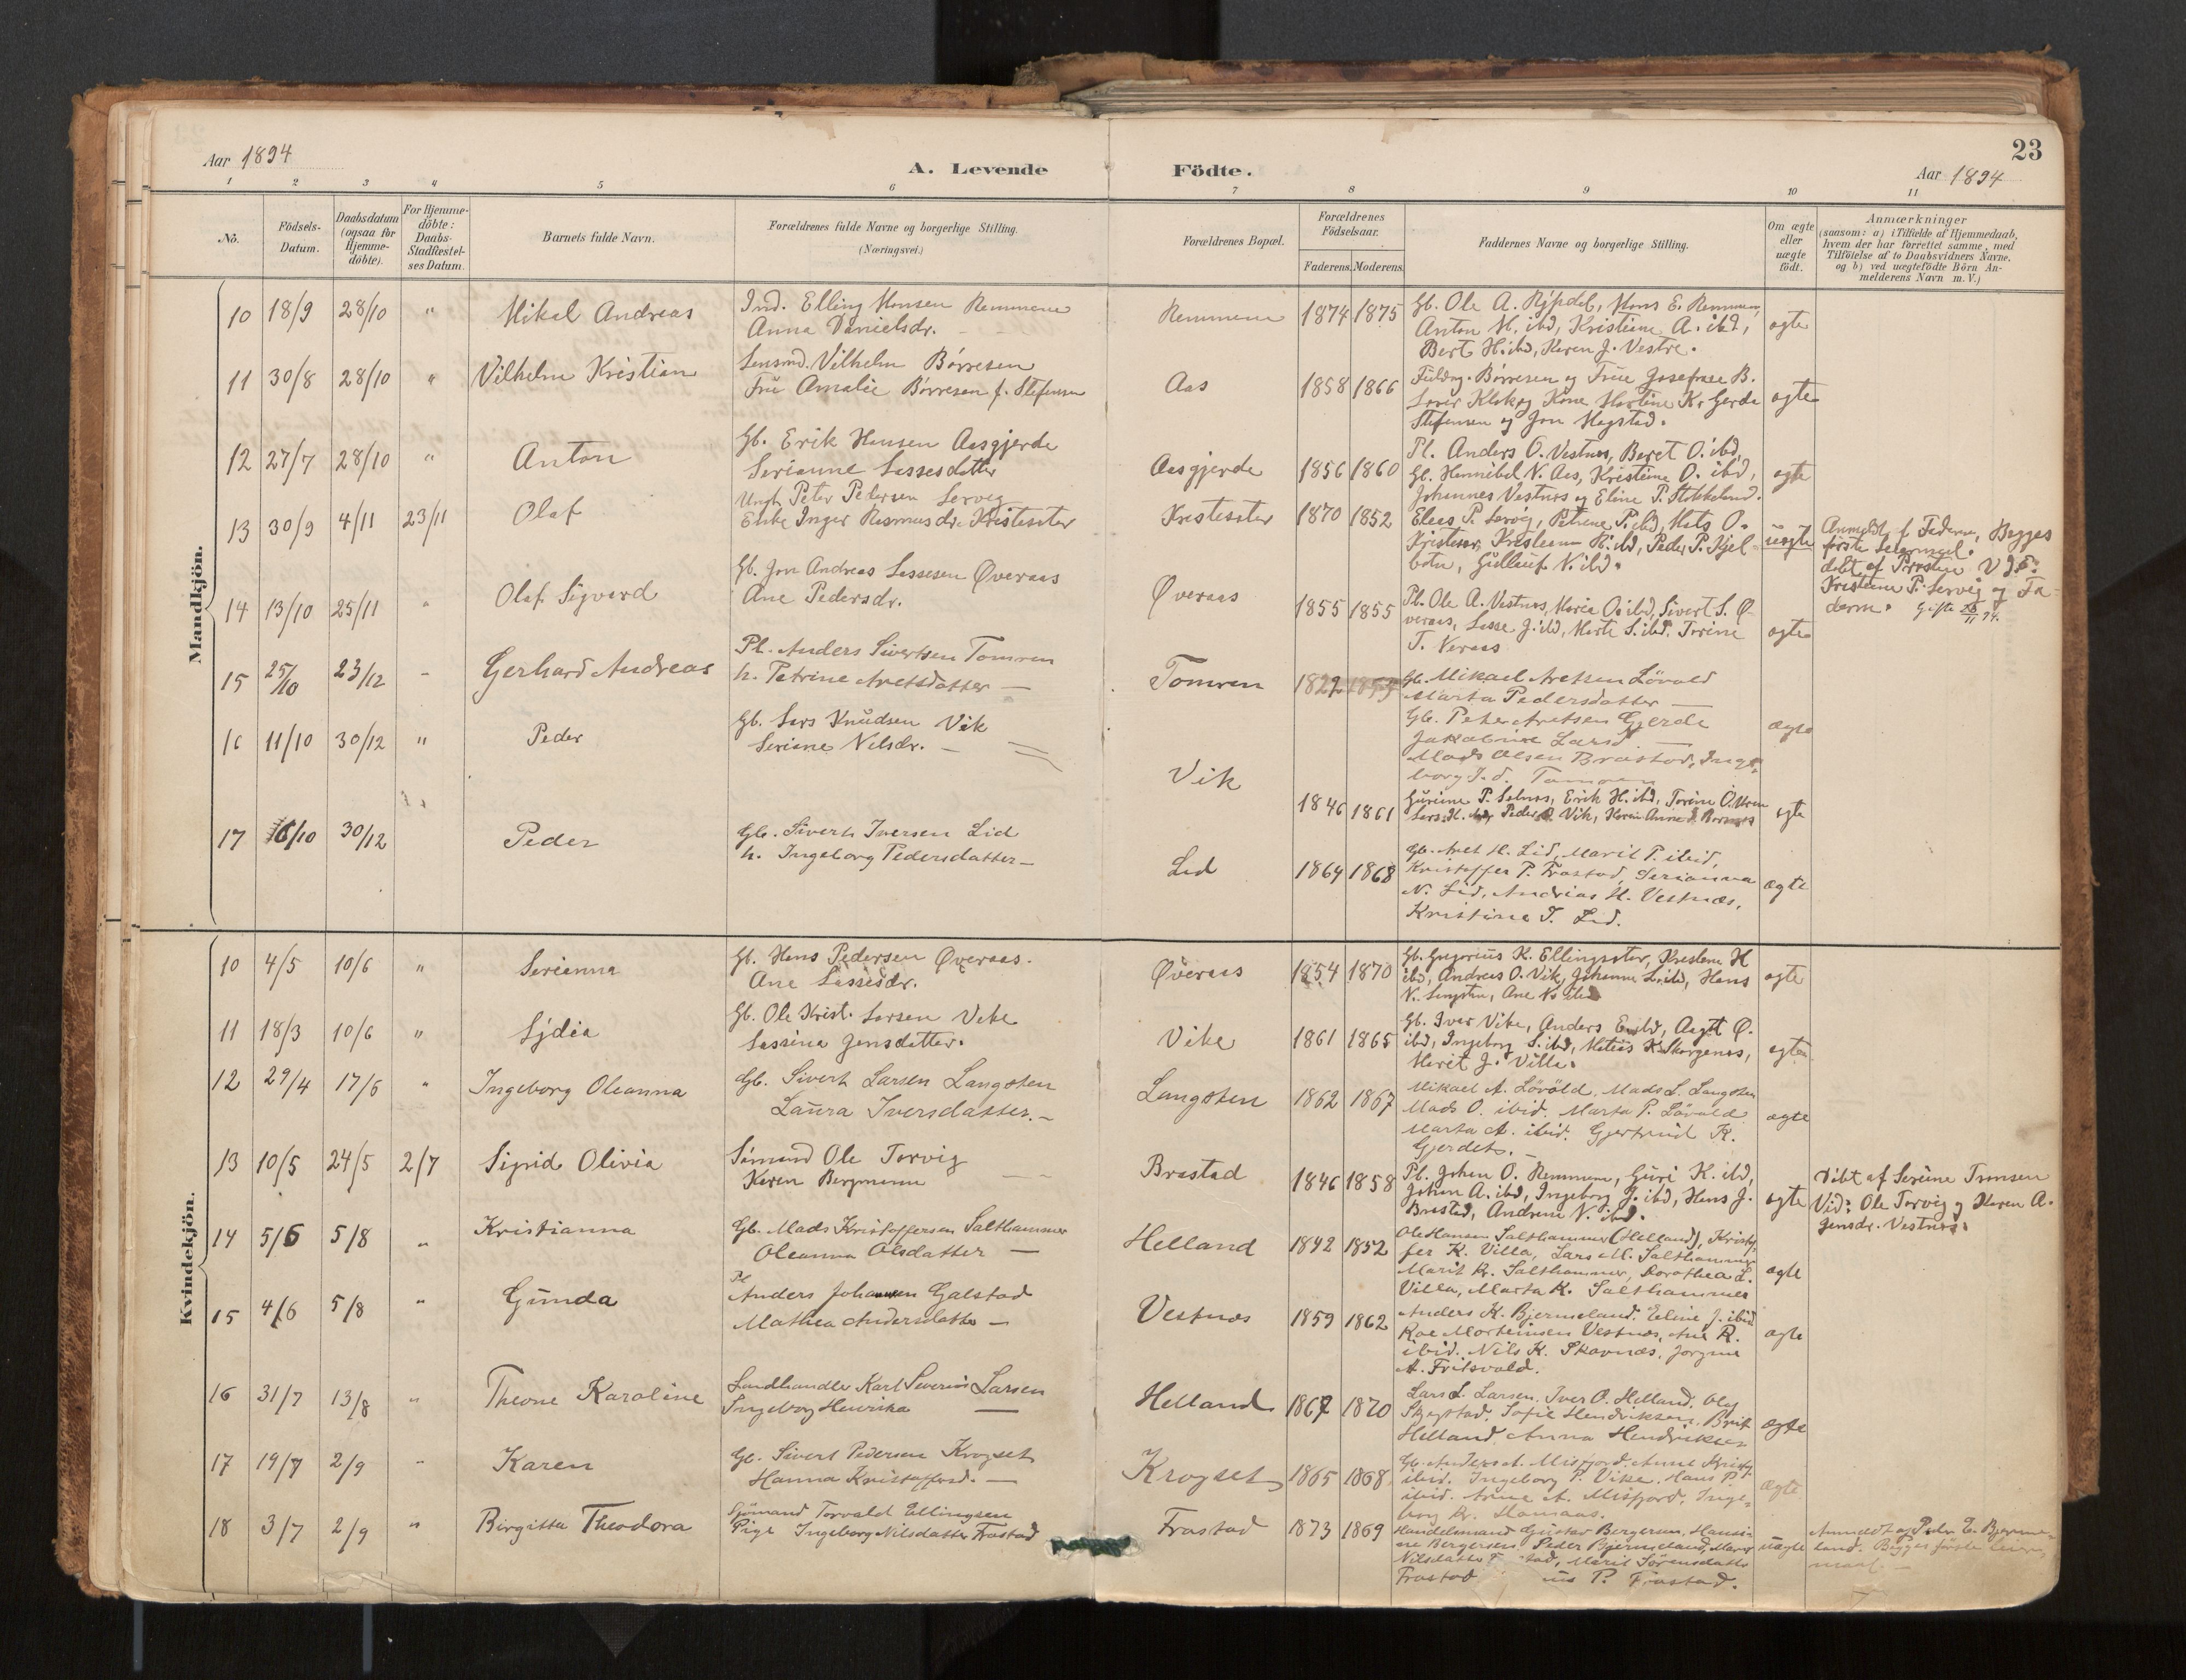 23
Aar 1894
A. Levende Födte.
Aar 1894
1 2 3 4 5 6 7 8 9 10 11
No.
Födsels-Datum.
Daabsdatum (ogsaa for Hjemme-döbte).
For Hjemme-döbte: Daabs-Stadfestel-ses Datum.
Barnets fulde Navn.
Forældrenes fulde Navne og borgerlige Stilling. (Næringsvei.)
Forældrenes Bopæl.
Forældrenes Födselsaar.
Faderens. Moderens.
Faddernes Navne og borgerlige Stilling.
Om ægte eller uægte födt.
Anmærkninger
(saasom: a) i Tilfælde af Hjemmedaab,
hvem der har forrettet samme, med
Tilföielse af to Daabsvidners Navne,
og b) ved uægtefödte Börn An-
melderens Navn m. V.)
Mandkjön.
10 18/9 28/10 " Mikal Andreas
Ind. Elling Monsen Remmem
Anna Danielsdr.
Remmem 1874 1875
Gb. Ole A. Rypdal, Mons E. Remmem,
Anton M. ibd, Kristine A. ibd,
Bert H. ibd, Karen J. Vestre.
ægte
11 30/8 28/10 " Vilhelm Kristian
Lensmd. Vilhelm Börresen
Frü Amalie Börresen f. Stefensen
Aas 1858 1866
Börresen og Früe Josefine B.
Kone Martine K. Gerda
Stefensen og Jon Magstad.
ægte
12 27/7 28/10 " Anton
Gb. Erik Hansen Aasgjerde
Serianne Lassesdatter
Aasgjerde 1856 1860
Pl. Anders O. Vestnes, Beret O. ibd,
Gb. Hannibal N. Aas, Kristine O. ibd,
Johannes Vestnes og Eline P. Stokkeland.
ægte
13 30/9 4/11 23/11 Olaf
Ungk. Peter Pedersen Servig
Enke Inger Rasmusdr. Kristiseter
Kristiseter 1870 1852
Elias P. Servig, Petrine P. ibd, Mats O.
Peder P. Kjel-
botn, Gülleuf N. ibd.
uægte
Anmeldt f Faderen, Begges
første Leiermaal.
döbt af
Kristine P. Servig og Fa-
deren. Gifte 23/11 94.
14 13/10 25/11 " Olaf Sigvard
Gb. Jon Andreas Lassesen Øveraas
Ane Pedersdr.
Øveraas 1855 1855
Pl. Ole A. Vestnes, Maria O. ibd, Sivert S. Ø-
veraas, Lasse J. ibd, Marte S. ibd, Torine
T. Veraas
ægte
15 25/10 23/12 " Gerhard Andreas
Pl. Anders Sivertsen Tomren
h. Petrine Aretsdatter —
Tomren 1822 1853
Gb. Mikael Aretsen Lövold
Marta Pedersdatter —
Gb. Peter Aretsen Gjerde
Jakobine Larsd —
Mads Olsen Brastad, Inge-
borg I. d. Tomren
ægte
16 11/10 30/12 " Peder
Gb. Lars Knudsen Vik
Seriane Nilsdr. —
Vik 1846 1861
Guriine P. Selnes, Erik H. ibd, Torine O.
Lars K. ibd, Peder O. Vik, Karen Anne
ægte
17 16/10 30/12 Peder
Gb. Sivert Iversen Lid
h. Ingeborg Pedersdatter —
Lid 1864 1868
Gb. Aret H. Lid, Marit P. ibid,
Kristoffer P. Frostad, Serianna
N. Lid, Andrias H. Vestnæs,
Kristine T. Lid.
ægte
Kvindekjön.
10 4/5 10/6 " Serianna
Gb. Hans Pedersen Øveraas.
Ane Lassesdr.
Øveraas 1854 1870
Gb. Gregorius K. Ellingseter, Kristine H
ibd, Andreas O. Vik, Johanne L. ibd, Hans
N. Langsten, Ane K.
ægte
11 18/3 10/6 " Lydia
Gb. Ole Krist. Larsen Vike
Lassina Jensdatter.
Vike 1861 1865
Gb. Iver Vike, Anders E. ibd, Aagot O.
ibd, Ingeborg S. ibd, Matias K. Skorgenes,
Marit J. Villa.
ægte
12 29/4 17/6 " Ingeborg Oleanna
Gb. Sivert Larsen Langsten
Laura Iversdatter. —
Langsten 1862 1867
Mikael A. Lövold, Mads L. Langsten
Mads O. ibid. Marta P. Lövold
Marta A. ibid. Gjertrud K.
Gjerdet.
ægte
13 10/5 24/5 2/7 Sigrid Olivia
Sömand Ole Torvig
Karen Bergmann
Brastad 1846 1858
Pl. Johan O. Remmem, Guri K. ibd,
Johan A. ibd, Ingeborg J. ibd, Hans J.
Brastad, Andrine N. ibd.
ægte
Döbt af Serine Tomsen
Vid: Ole Torvig og Karen A.
Jensdr. Vestnes.
14 5/6 5/8 " Kristianna
Gb. Mads Kristoffersen Salthammer
Oleanna Olsdatter —
Helland 1842 1852
Ole Hansen Salthammer (Helland), Kristof-
fer K. Villa, Lars M. Salthammer
Marit K. Salthammer, Dorothea L.
Villa, Marta K. Salthammer
ægte
15 4/6 5/8 " Gunda
Pl.
Anders Johannesen Galstad
Mathea Andersdatter —
Vestnæs 1859 1862
Anders K. Bjermeland. Eline J. ibid
Roe Morteinsen Vestnæs, Ane R.
ibid. Nils K. Skavnæs, Jorgine
A. Fritsvold.
ægte
16 31/7 13/8 " Theone Karoline
Landhandler Karl Severin Larsen
Ingeborg Henrika —
Helland 1867 1870
Lars L. Larsen, Iver O. Helland, Olaf
Skjegstad, Sofie Hendriksen, Brit
Helland, Anna Hendriksen
ægte
17 19/7 2/9 " Karen
Gb. Sivert Pedersen Krogset
Hanna Kristofferd. —
Krogset 1865 1868
Gb. Anders A. Misfjord, Anne Kristof.
ibid. Ingeborg P. Vike, Hans P.
ibid. Anne A. Misfjord, Inge-
borg
ægte
18 3/7 2/9 " Birgitta Theodora
Sjömand Torvald Ellingsen
Pige Ingeborg Nilsdatter Frostad
Frostad 1873 1869
Handelsmand Gustav Bergersen, Hansi-
ne Bergersen, Peder Bjermeland, Maren
Nilsdatter tad, Marit Sörensdatter
Frostad P. Frostad.
uægte
Anmeldt af Peder E. Bjerme-
land. Begges förste Leier-
maal —